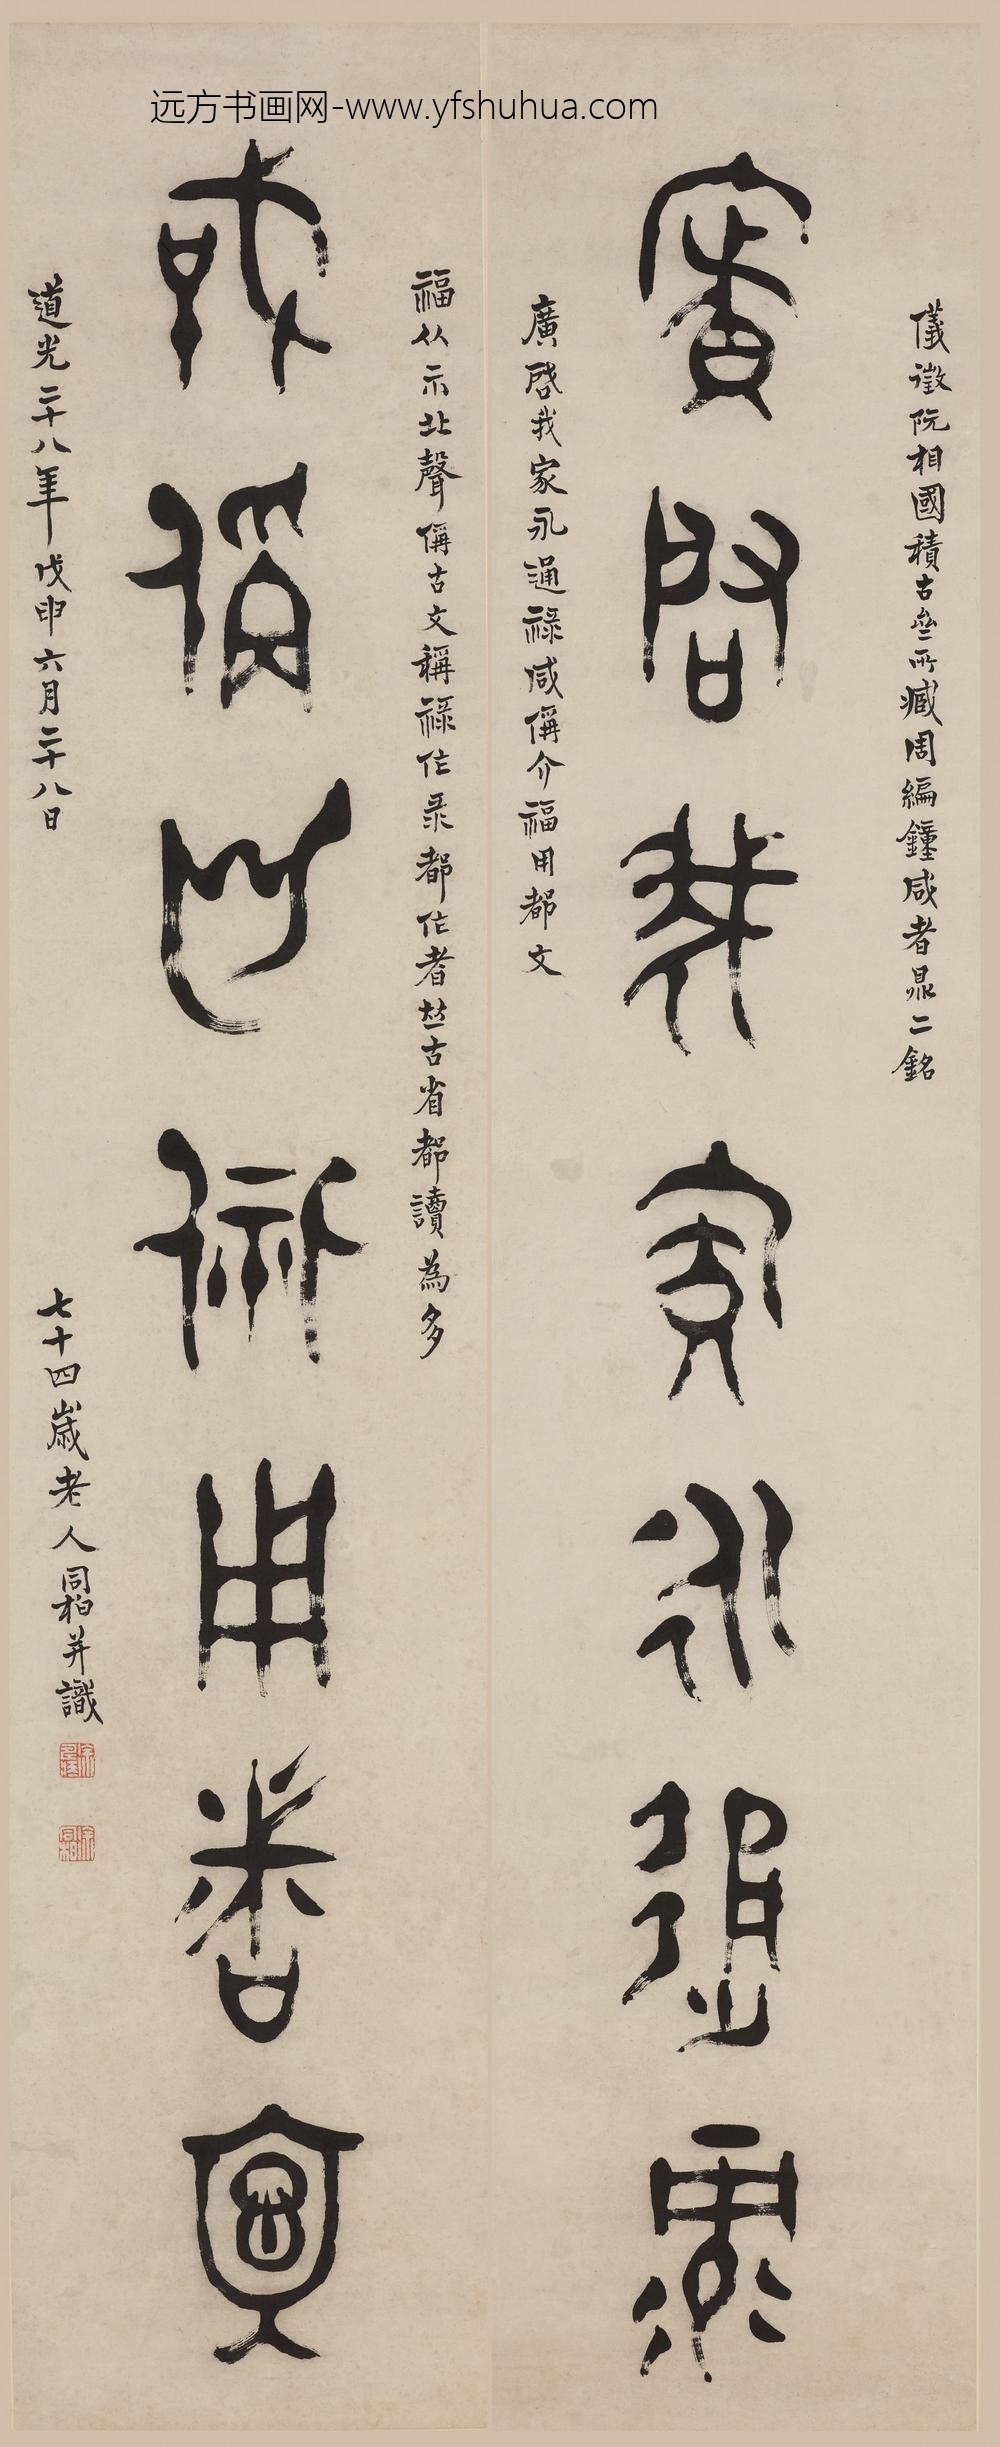 远方书画网-www.yfshuhua.com
儀徵阮相國積古齋所臧周編鐘咸者鼎二銘
廣啟我家永通祿
廣啟我家永通祿咸偁介福用都文
福从示北聲偁古文稱祿作彔都作者竝古省都讀為多
咸偁介福用都文
道光二十八年戊申六月二十八日
七十四歲老人同柏并識